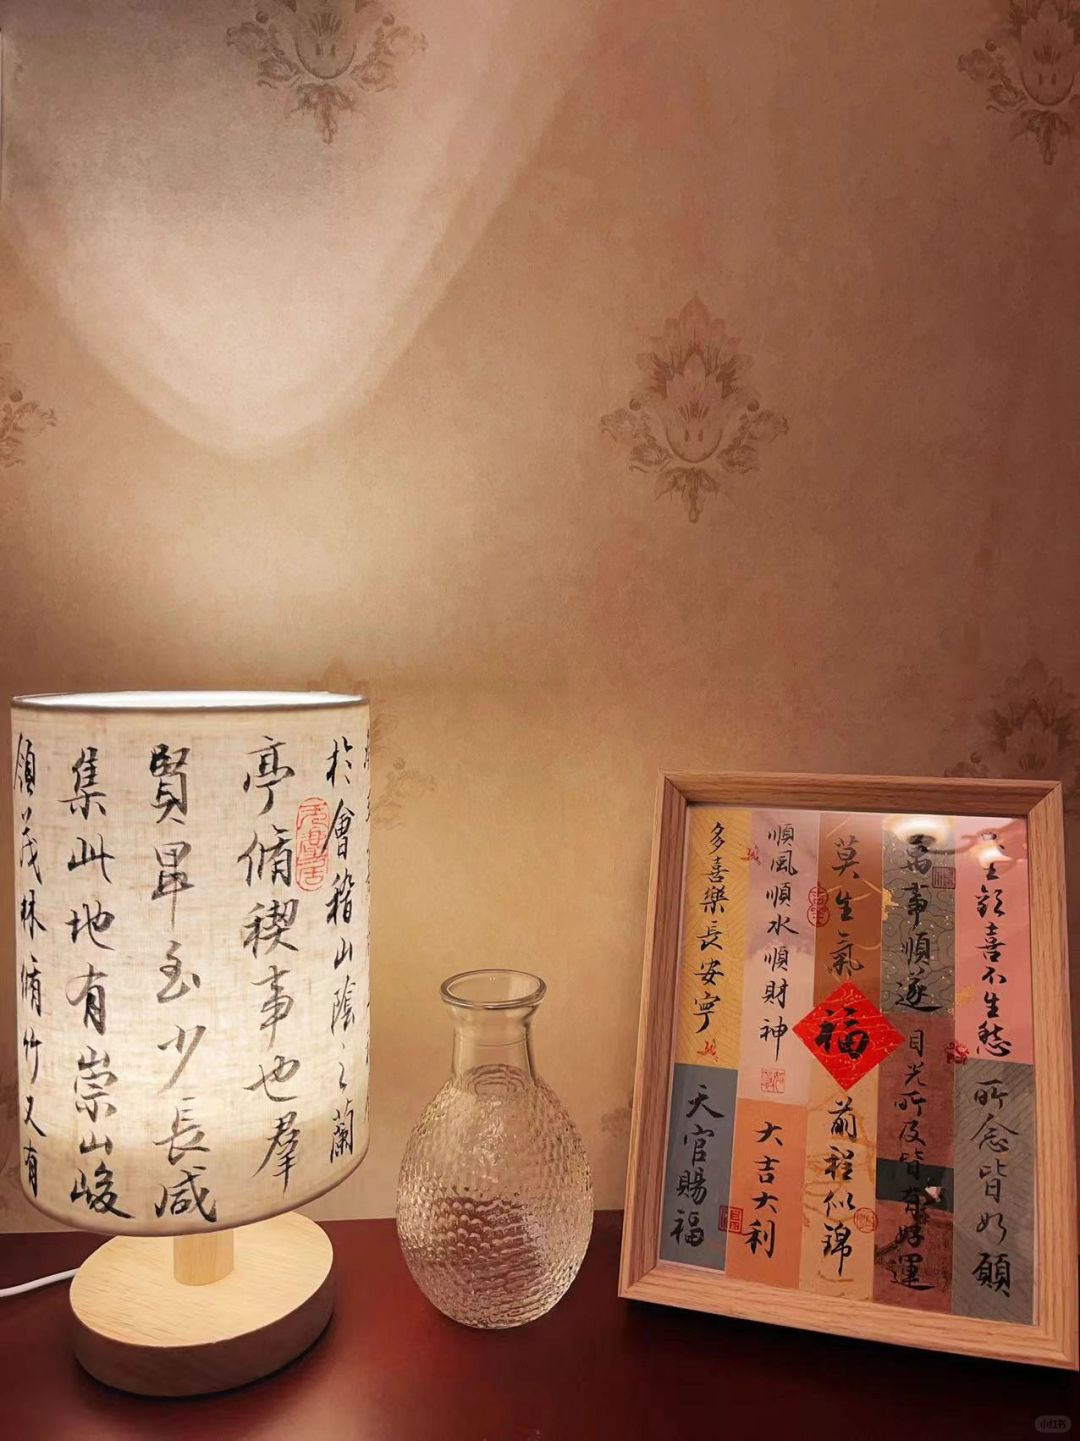 於會稽山陰之蘭
亭脩稧事也羣
賢畢至少長咸
集此地有崇山峻
領茂林脩竹又有
欣喜不生愁
所念皆如願
萬事順遂
目光所及皆有好運
莫生氣
福
前程似錦
順風順水順財神
大吉大利
多喜樂長安寧
天官賜福
小红书